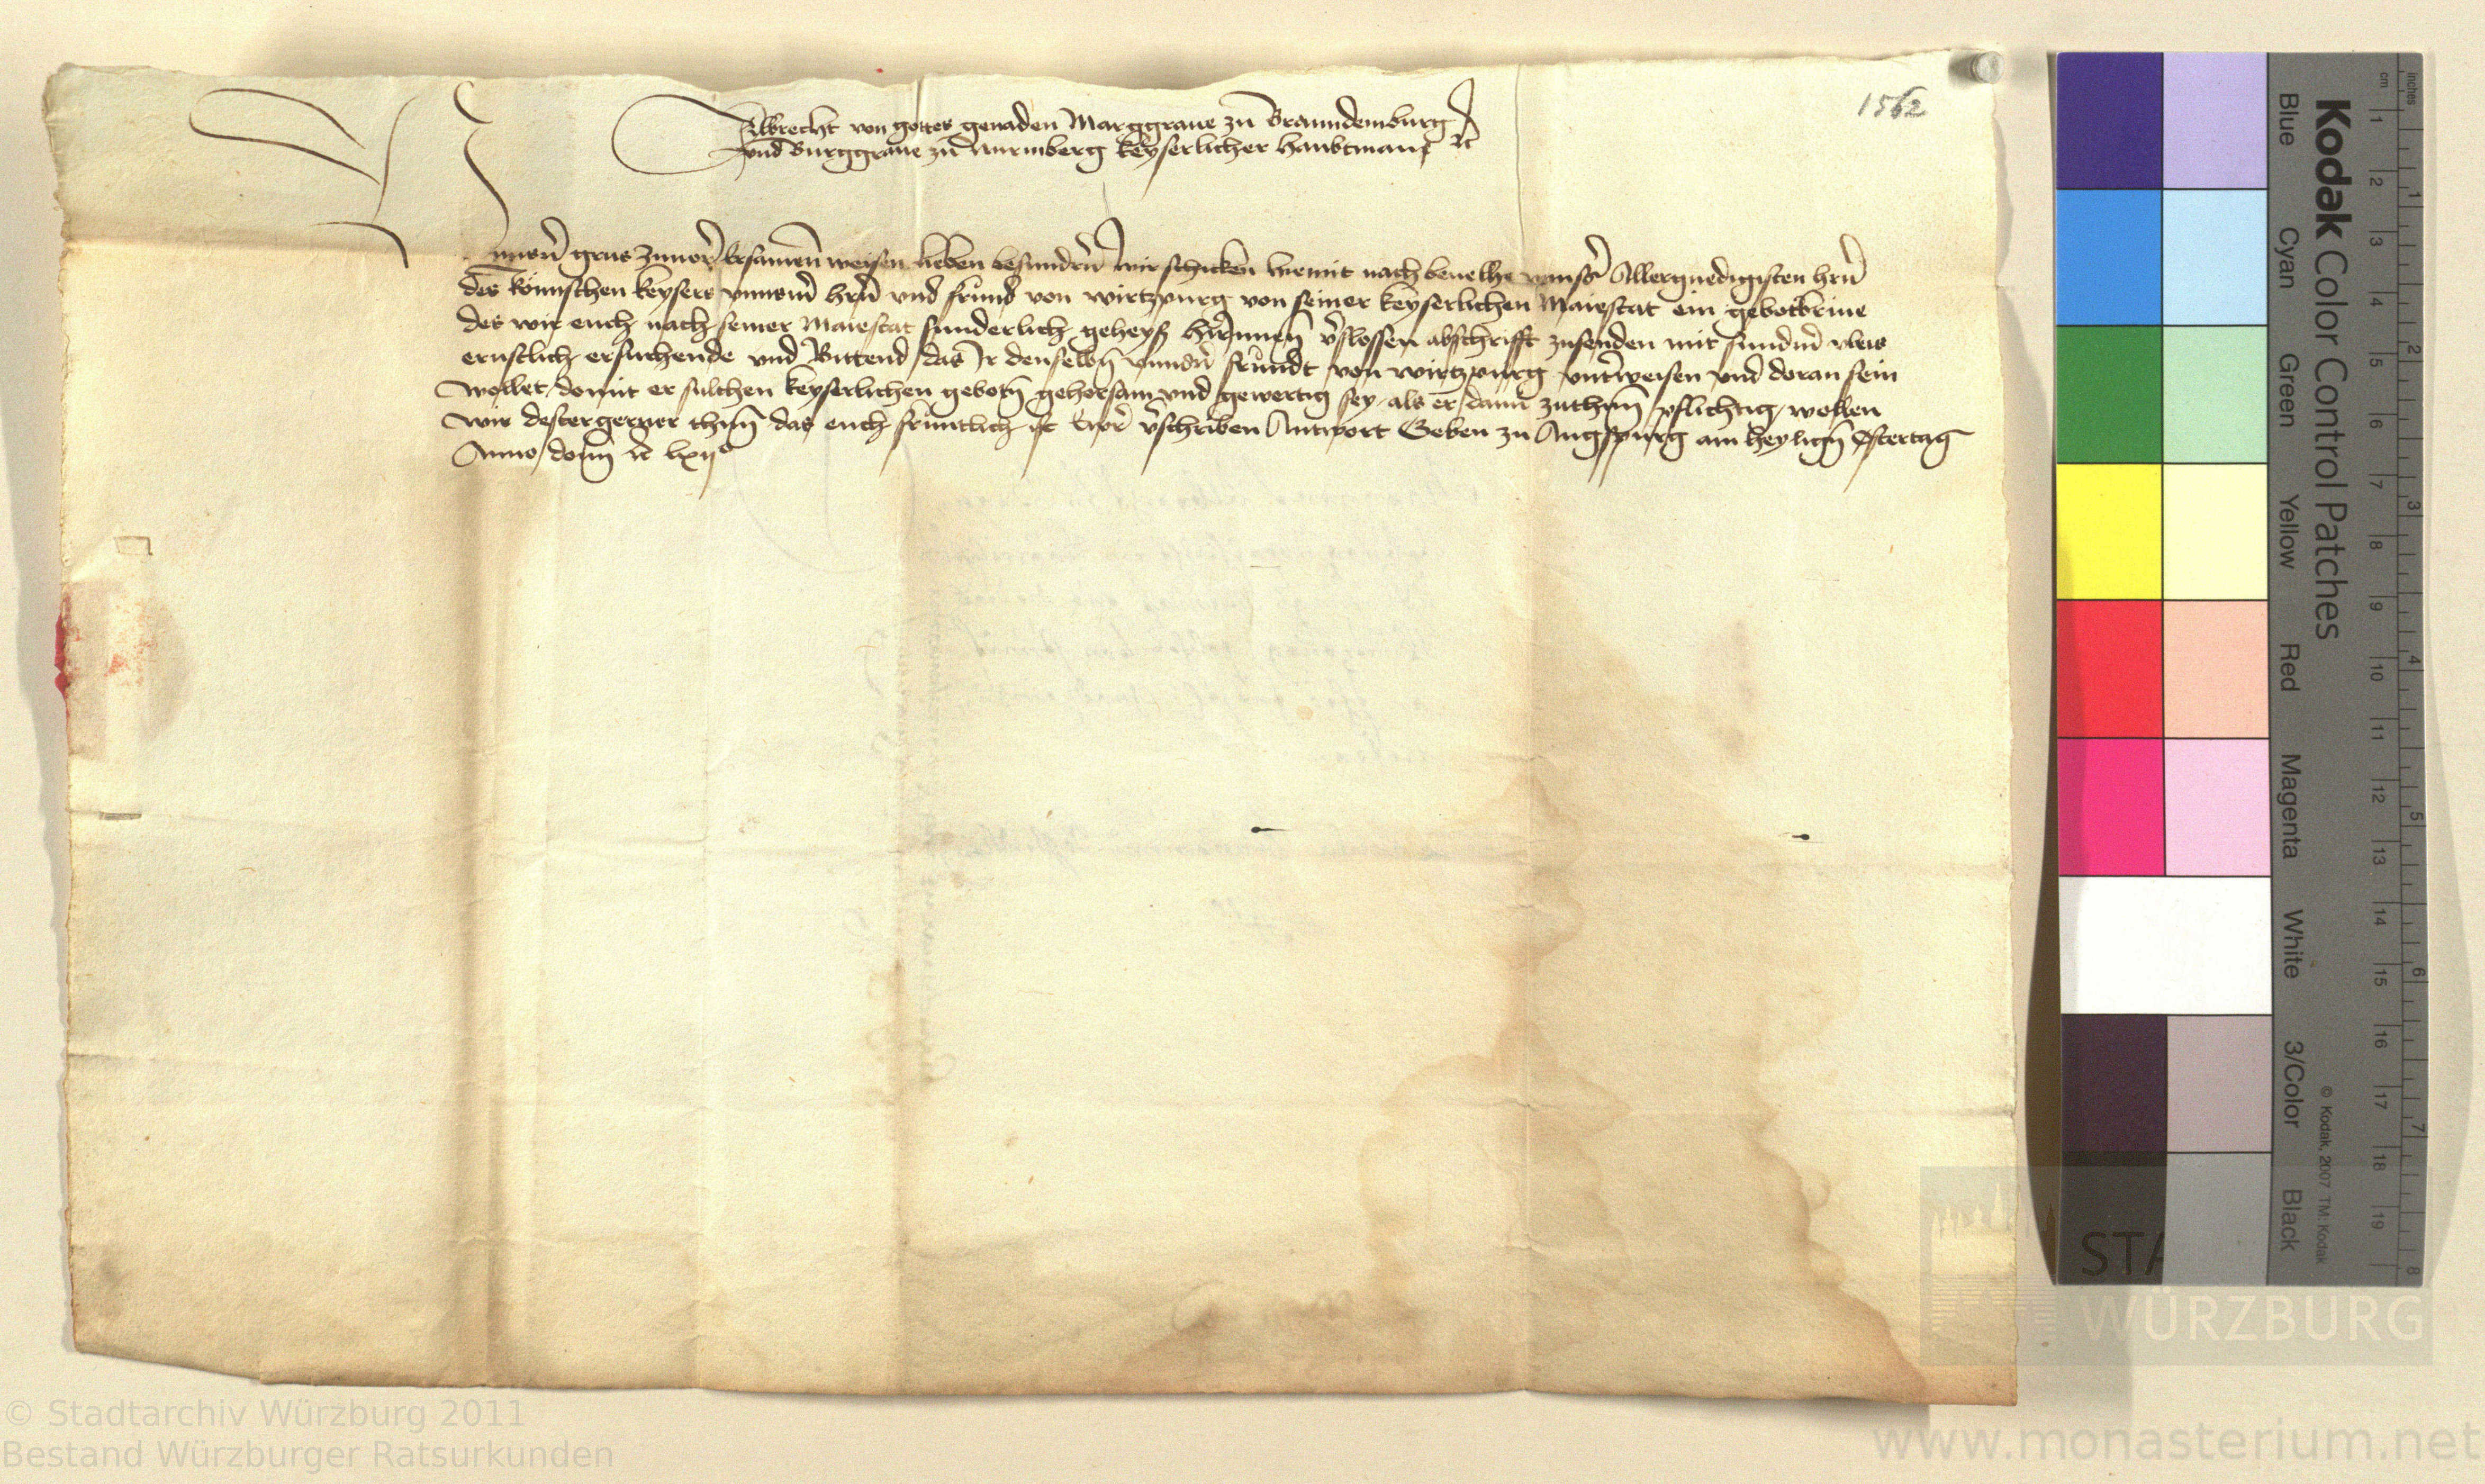 1562
Albrecht von gottes genaden Marggraue zu Branndemburg
vnd Burggraue zu Nurmberg keyserlicher haubtman ꝛc
Vnnsern̄ grus zuuor ersamen weisen lieben besundern̄ wir schicken hiemit nach beuelhe vnnser Allergnedigisten hern̄
des Römischen keysers vnnserm̄ hern̄ vnd frund von wirtzpurg von seiner keyserlichen Maiestat ein gebotbriue
des wir euch nach seiner Maiestat sunderlich geheyß hirinnen v̄slossen abschrifft zusenden mit sunderm̄ vleis
ernstlich ersuchende vnd Bittend das Ir denselbn̄ vnnsern̄ frundt von wirtzpurg vnterweisen vnd doran sein
wollet domit er sulchen keyserlichen gebotn̄ gehorsam vnd gewertig sey als er dann zuthun̄ pflichtig wollen
wir destergerner thun̄ das euch fruntlich ist Ewr̄ v̄schriben Antwort Geben zu Augspurg am heylign̄ Ostertag
Anno domī ꝛc lxijᵒ
Kodak Color Control Patches
Blue Cyan Green Yellow Red Magenta White 3/Color Black
© Kodak, 2007 TM: Kodak
cm 1 2 3 4 5 6 7 8 9 10 11 12 13 14 15 16 17 18 19
inches 1 2 3 4 5 6 7 8
STA
WÜRZBURG
© Stadtarchiv Würzburg 2011
Bestand Würzburger Ratsurkunden
www.monasterium.net